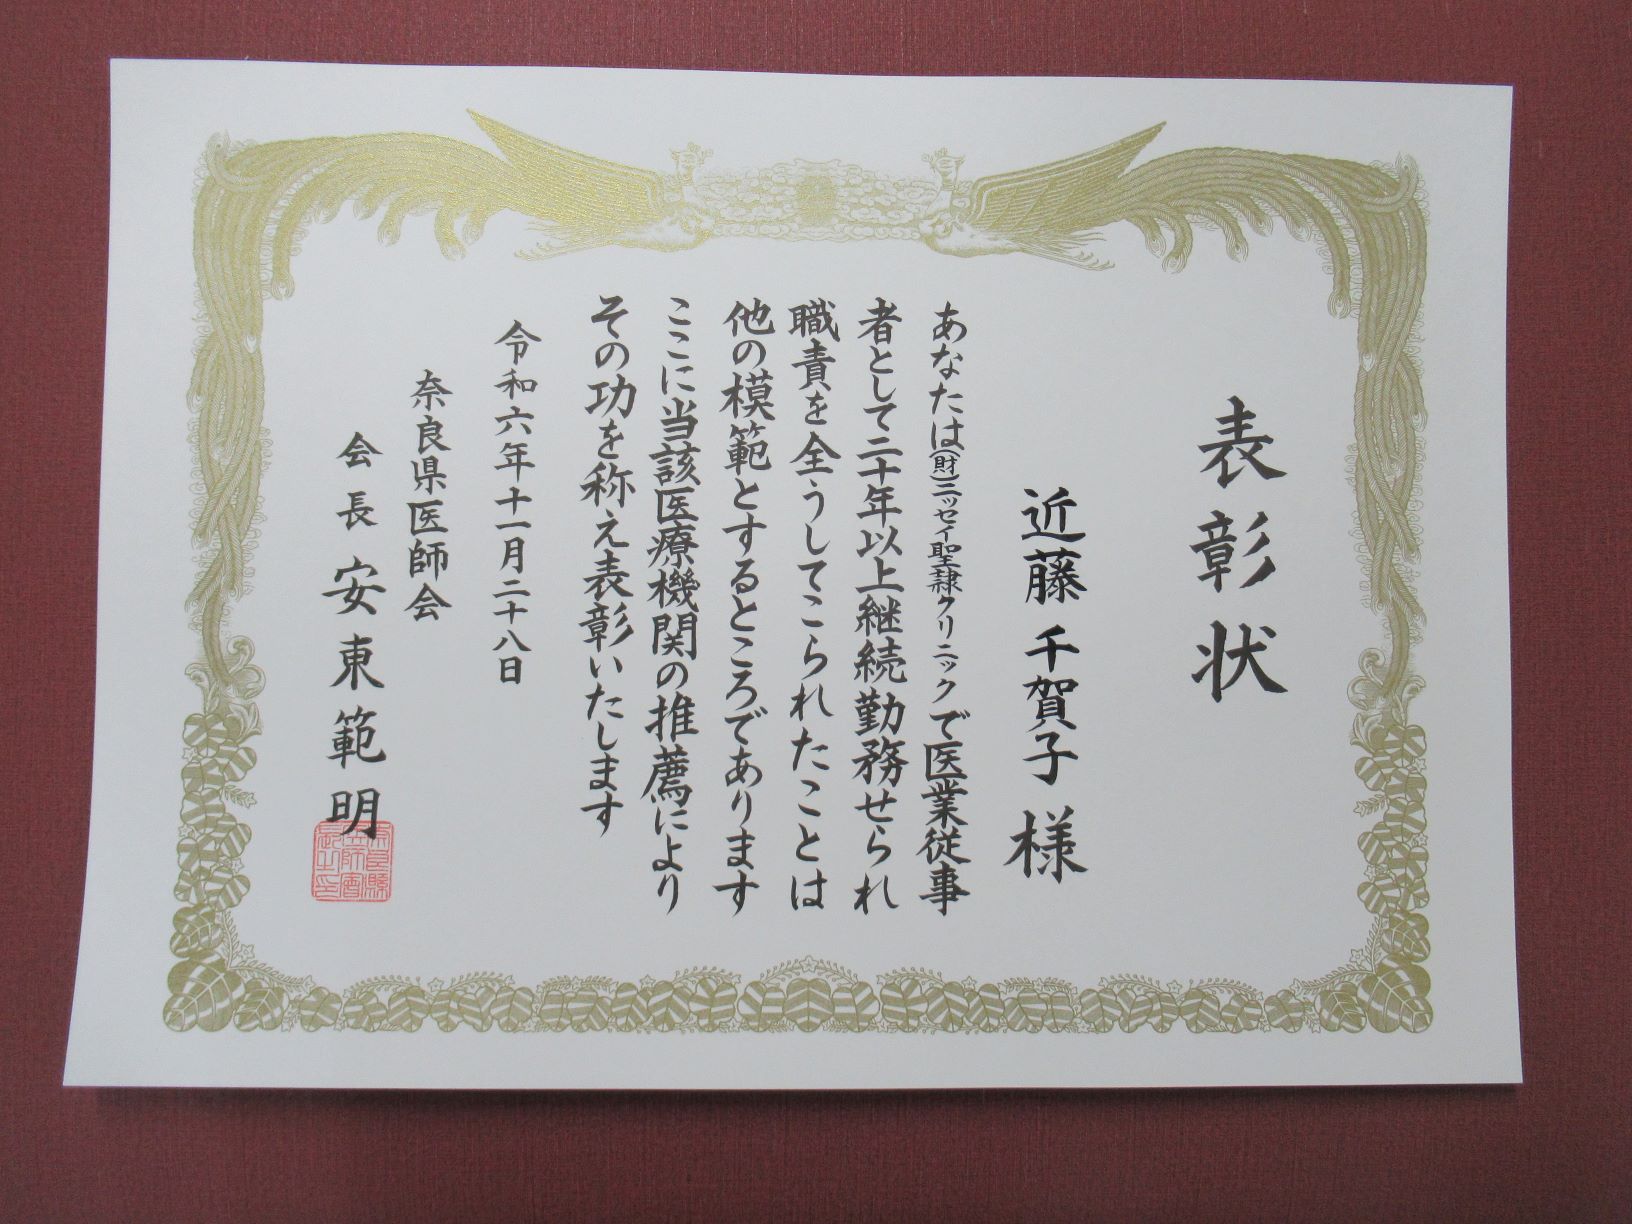 表彰状
近藤千賀子様
あなたは(財)ニッセイ聖隷クリニックで医業従事
者として二十年以上継続勤務せられ
職責を全うしてこられたことは
他の模範とするところであります
ここに当該医療機関の推薦により
その功を称え表彰いたします
令和六年十一月二十八日
奈良県医師会
会長 安東範明
奈良縣医師會長之印